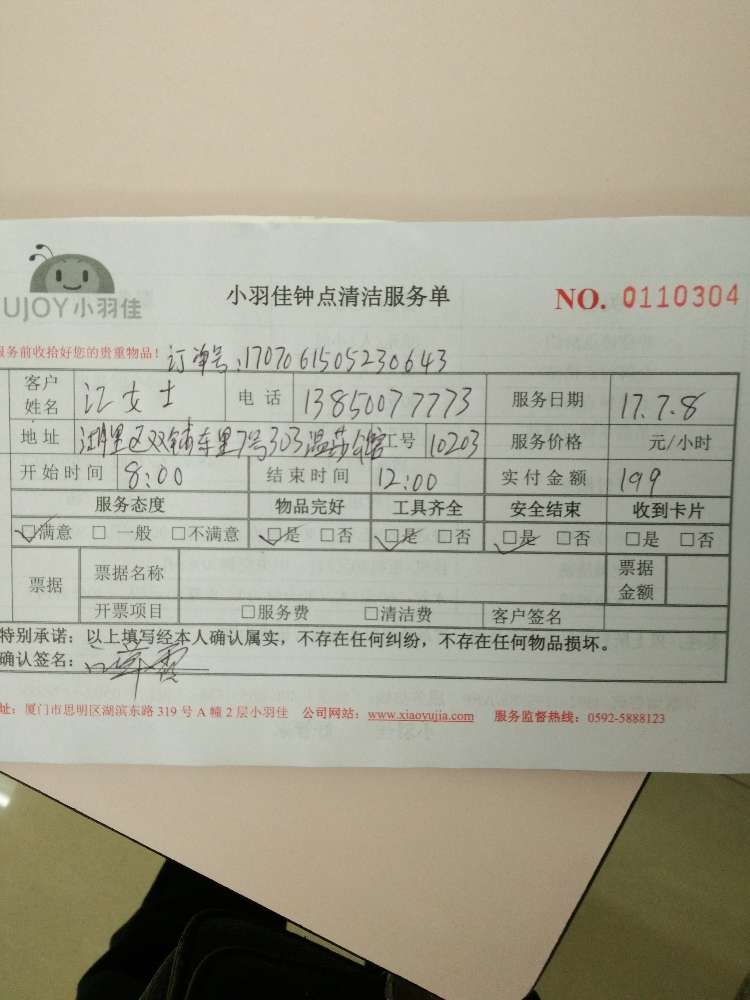 UJOY小羽佳
小羽佳钟点清洁服务单
NO. 0110304
服务前收拾好您的贵重物品!
订单号:17070615052306​43
客户姓名 江女士 电话 13850077773 服务日期 17.7.8
地址 湖里区双铺东里7号303温莎公馆 工号 10203 服务价格 元/小时
开始时间 8:00 结束时间 12:00 实付金额 199
服务态度 物品完好 工具齐全 安全结束 收到卡片
☑满意 □ 一般 □不满意 ☑是 □否 ☑是 □否 ☑是 □否 □是 □否
票据 票据名称 票据金额
开票项目 □服务费 □清洁费 客户签名
特别承诺:以上填写经本人确认属实,不存在任何纠纷,不存在任何物品损坏。
确认签名:
址:厦门市思明区湖滨东路 319 号 A 幢 2 层小羽佳 公司网站:www.xiaoyujia.com 服务监督热线:0592-5888123